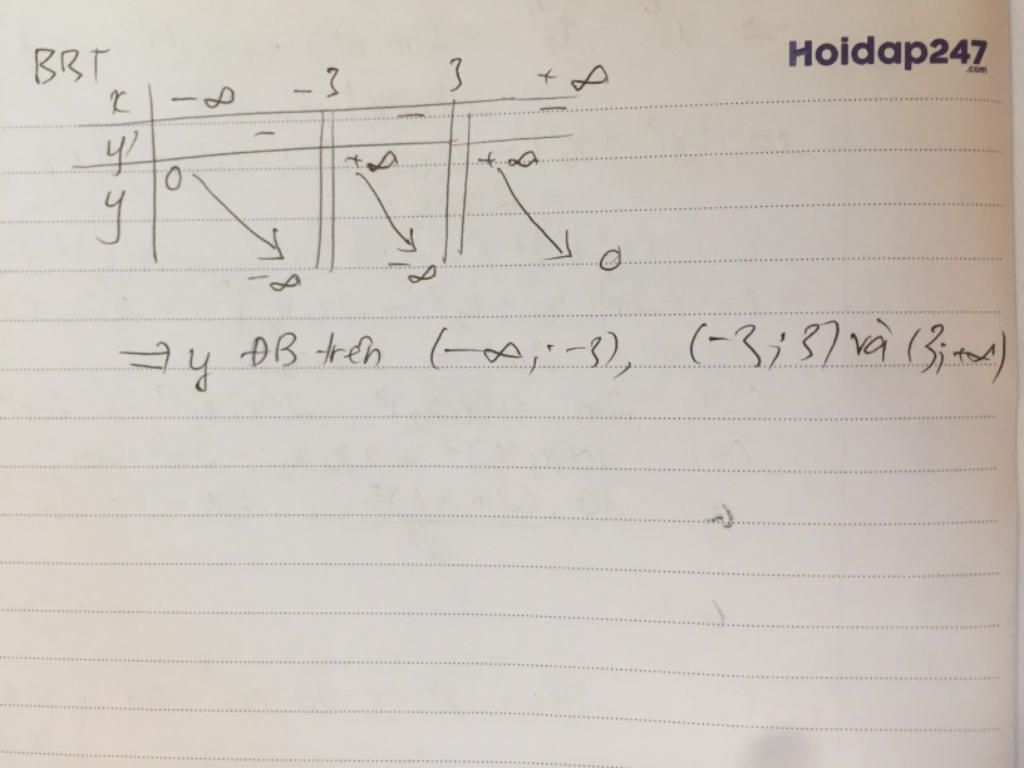 Hoidap247
.com
BBT
x -∞ -3 3 +∞
y' - - -
y 0 +∞ +∞
-∞ -∞ 0
⇒ y ĐB trên (-∞; -3), (-3; 3) và (3; +∞)